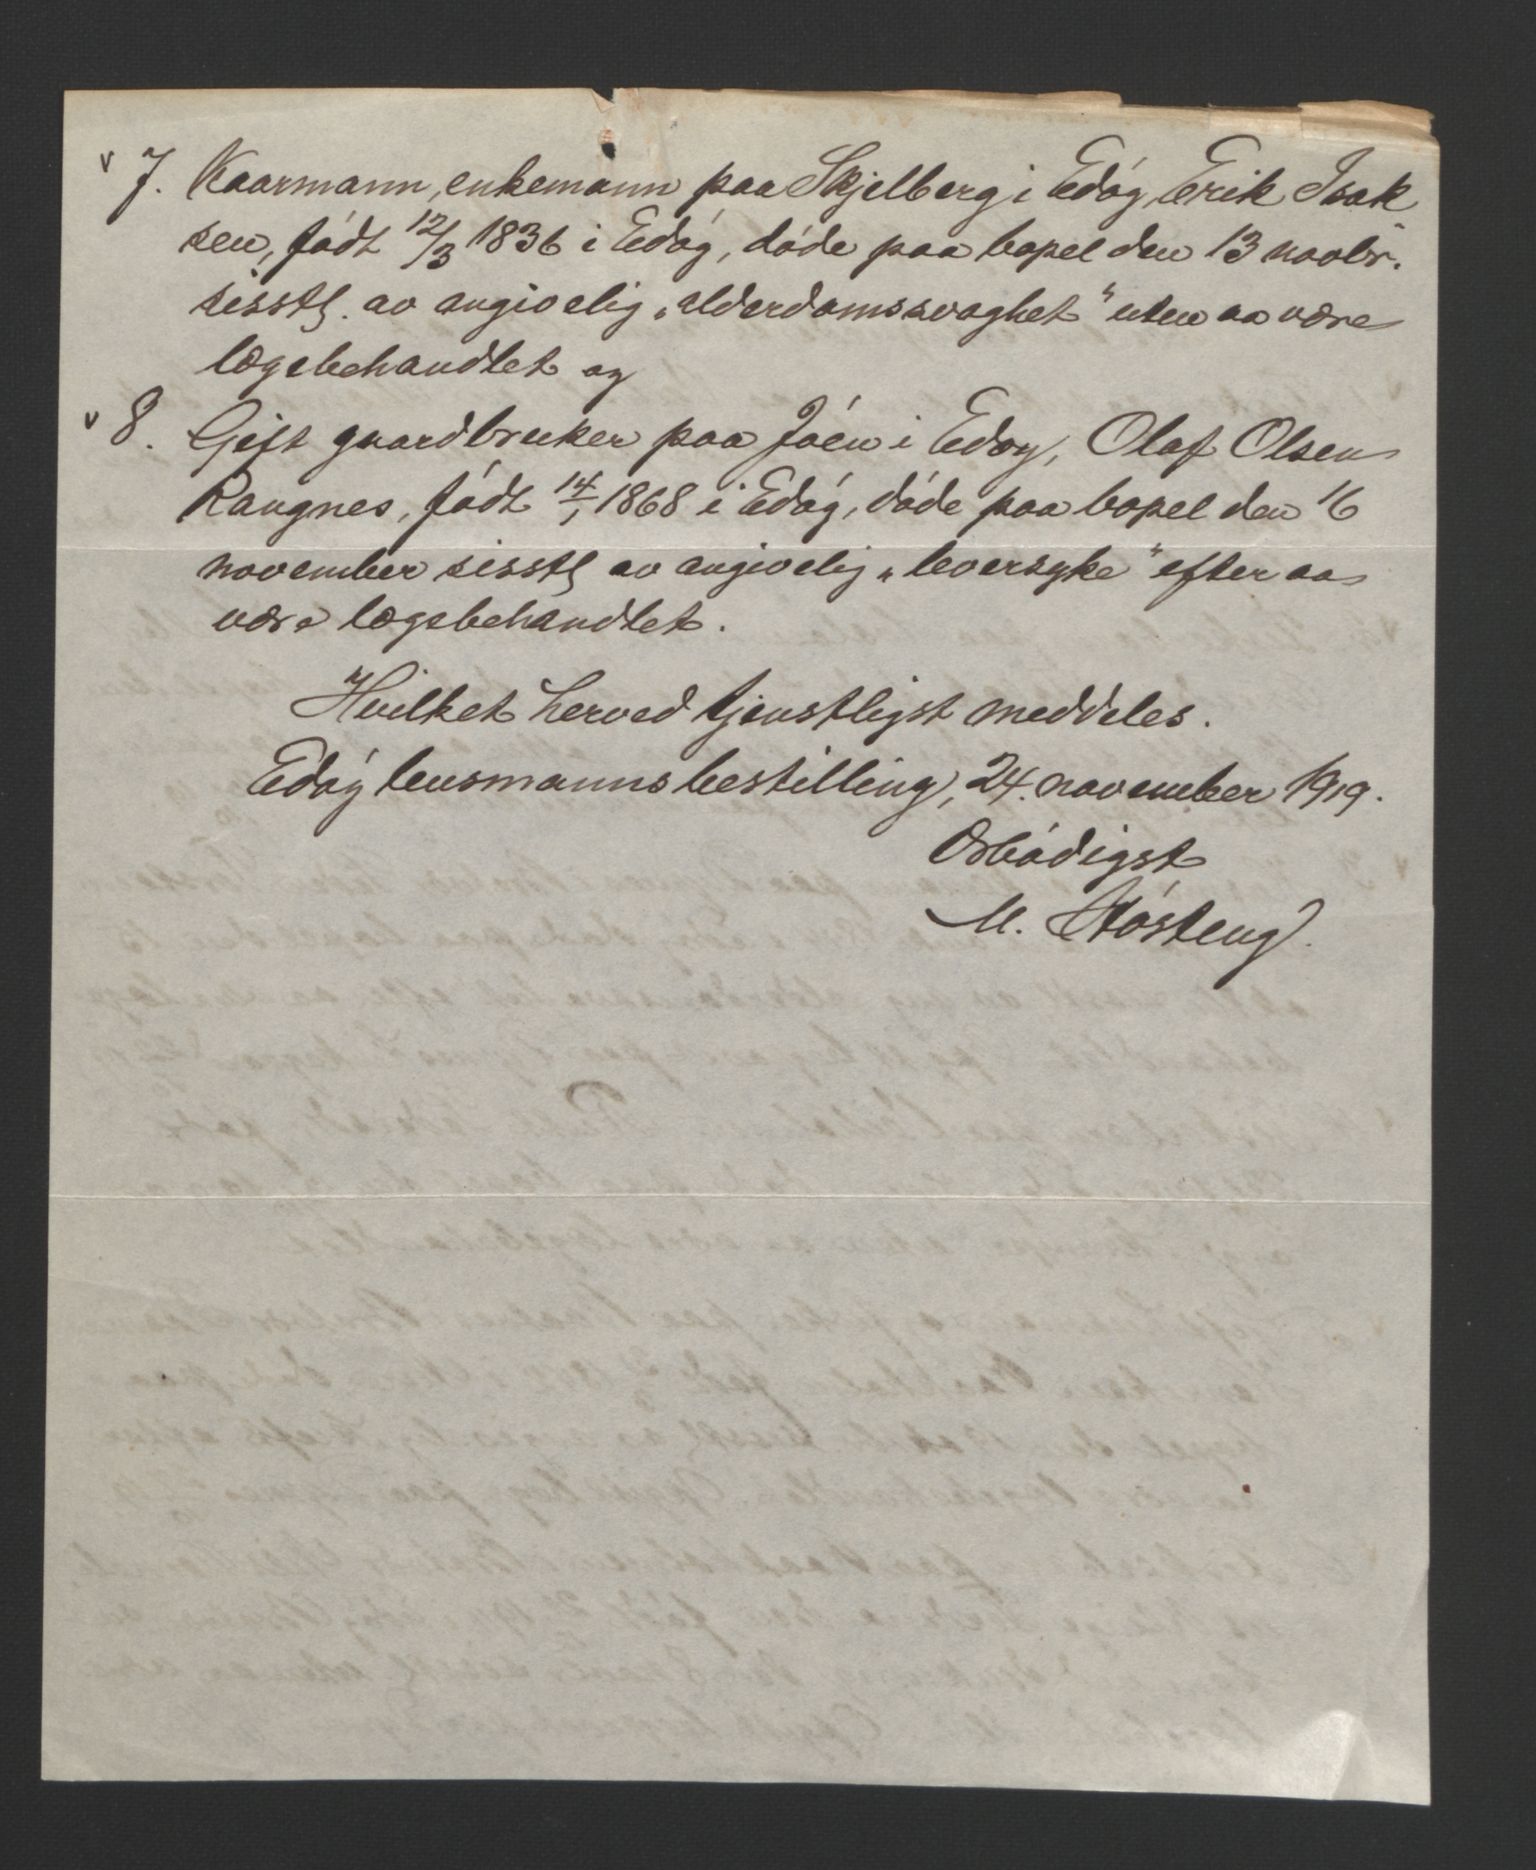 v 7. Kaarmann, enkemann paa Skjelberg i Edøy, Erik Isak
sen, født 12/3 1836 i Edøy, døde paa bopel den 13 novbr.
sisstl. av angivelig „alderdomssvaghet" uten aa være
lægebehandlet og
v 8. Gift gaardbruker paa Jøen i Edøy, Olaf Olsen
Rangnes, født 14/1 1868 i Edøy, døde paa bopel den 16
november sisstl av angivelig „leversyke" efter aa
være lægebehandlet.
Hvilket herved tjenstligst meddeles.
Edøy lensmannsbestilling, 24. november 1919.
Ærbødigst
M. Støsteng.